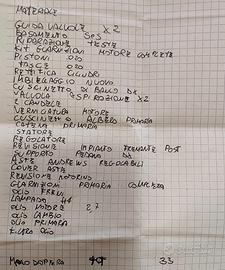 MATERIALE
GUIDA VALVOLE X2
BASAMENTO SO3
RIPARAZIONE TESTE
KIT GUARNIZIONI MOTORE COMPLETA
PISTONI 010
FASCE 010
RETTIFICA CILINDRI
IMBIELLAGGIO NUOVO
CUSCINETTO DI BANCO DX
VALVOLA ASPIRAZIONE X2
2 CANDELE
VERNICIATURA MOTORE
CUSCINETTO ALBERO PRIMARIA
CATENA PRIMARIA
STATORE
REGOLATORE
REVISIONE IMPIANTO FRENANTE POST
SUPPORTO PEDANA DX
ASTE ANDREWS REGOLABILI
COVER ASTE
REVISIONE MOTORINO
GUARNIZIONI PRIMARIA COMPLETA
OLIO FRENI
LAMPADA H4
OLIO MOTORE 2,7
OLIO CAMBIO
OLIO PRIMARIA
FILTRO OLIO
MANO D'OPERA 33